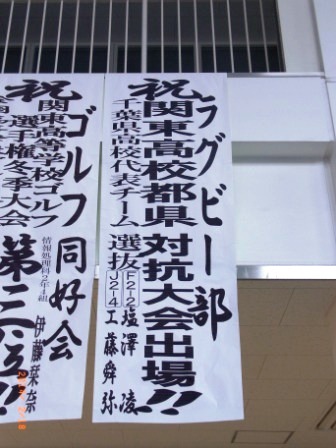 祝
ラグビー部
関東高校都県対抗大会出場!!
千葉県高校代表チーム選抜
F2-2 塩澤 凌
J2-4 工藤舜弥
祝
ゴルフ同好会
関東高等学校ゴルフ
選手権冬季大会
情報処理科2年4組
伊藤栞奈
第三位!!